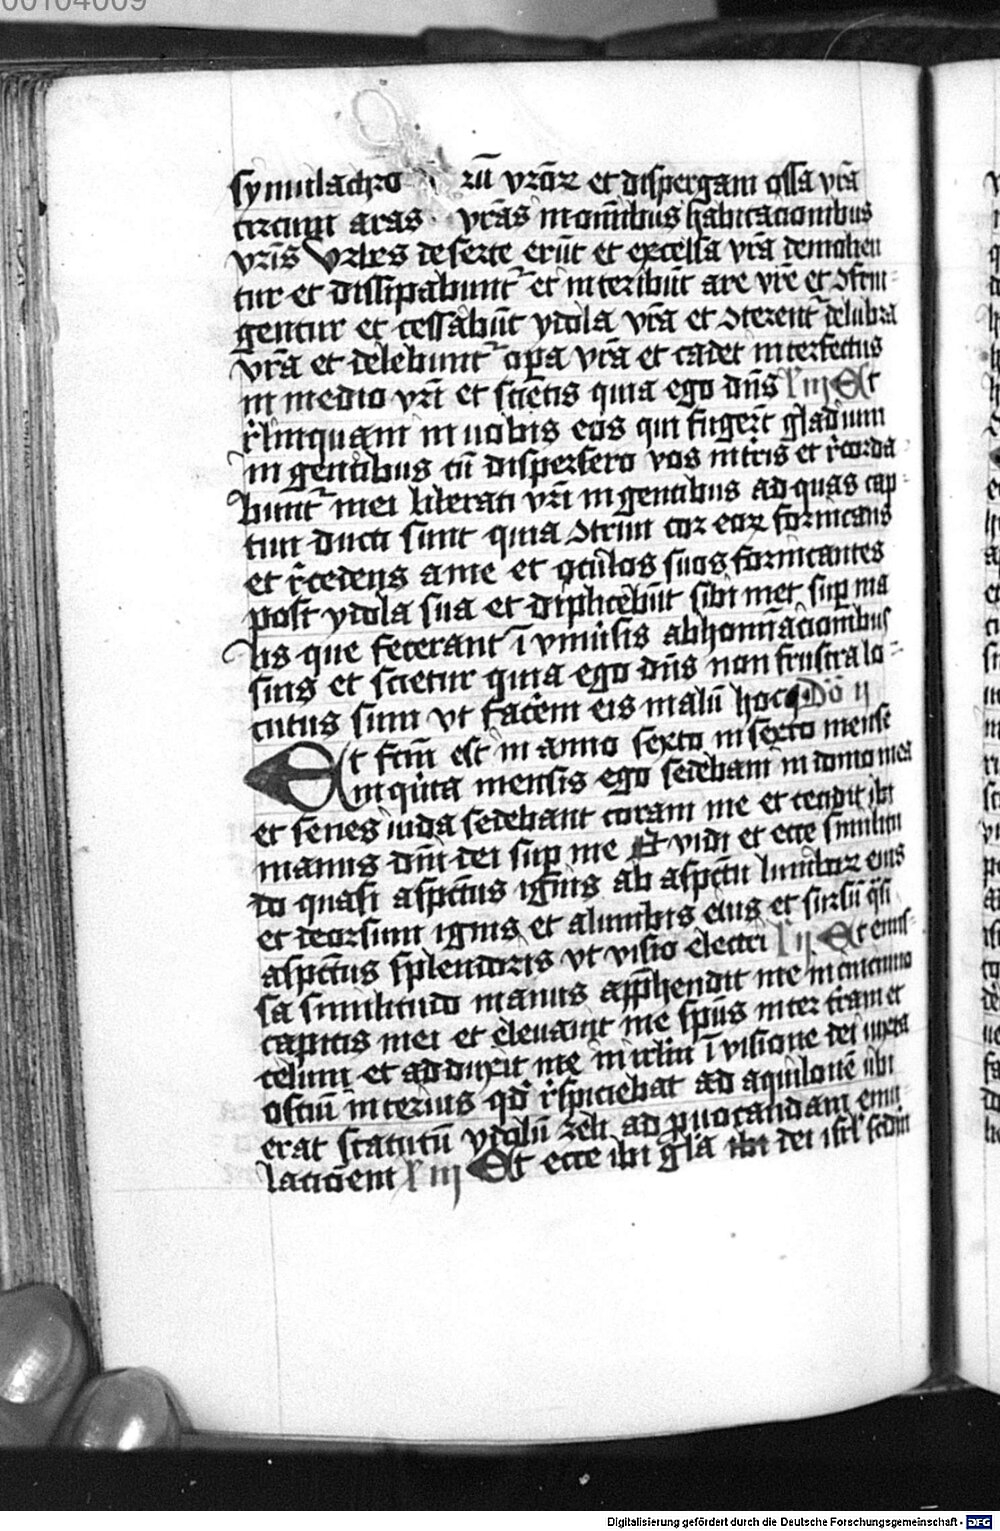 00104009
symulachro rū vr̄oꝝ et dispergam ossa vr̄a
circum aras vr̄as in om̄ibus habitacionibus
vr̄is Vrbes deserte erūt et excelsa vr̄a demolien
tur et dissipabunt᷑ et interibūt are vr̄e et ꝯfrin
gentur et cessabūt ydola vr̄a et ꝯterent᷑ delubra
vr̄a et delebunt᷑ oꝑa vr̄a et cadet interfectus
in medio vr̄i et sciētis quia ego dn̄s l iij Et
r̄linquam in uobis eos qui fuger̄t gladium
in gentibus cū dispersero vos in tr̄is et r̄corda
bunt᷑ mei liberati vr̄i in gentibus ad quas cap
tiui ducti sunt quia ꝯtriui cor eoꝝ fornicans
et r̄cedens a me et oculos suos fornicantes
post ydola sua et displicebūt sibi met suꝑ ma
lis que fecerant ī vniūsis abhomīacionibus
suis et scietur quia ego dn̄s non frustra lo
cutus sum vt facerem eis malū hoc Dō ij
Et fcm̄ est in anno sexto in sexto mense
in quīta mensis ego sedebam in domo mea
et senes iuda sedebant coram me et cecidit ibi
manus dn̄i dei suꝑ me Et vidi et ecce similitu
do quasi aspectus ignis ab aspectu lumboꝝ eius
et deorsum ignis et a lumbis eius et sursū q̄si
aspectus splendoris vt visio electri l ij Et emis
sa similitudo manus app̄hendit me in cincinno
capitis mei et eleuauit me sp̄us inter tr̄am et
celum et adduxit me in irl̄m ī visione dei iuxta
ostiū interius qd̄ r̄spiciebat ad aquilonē ubi
erat statutū ydolū zeli ad ꝓuocandam emu
lacōem l iij Et ecce ibi gl̄a dei isrl̄ scdm̄
Digitalisierung gefördert durch die Deutsche Forschungsgemeinschaft - DFG